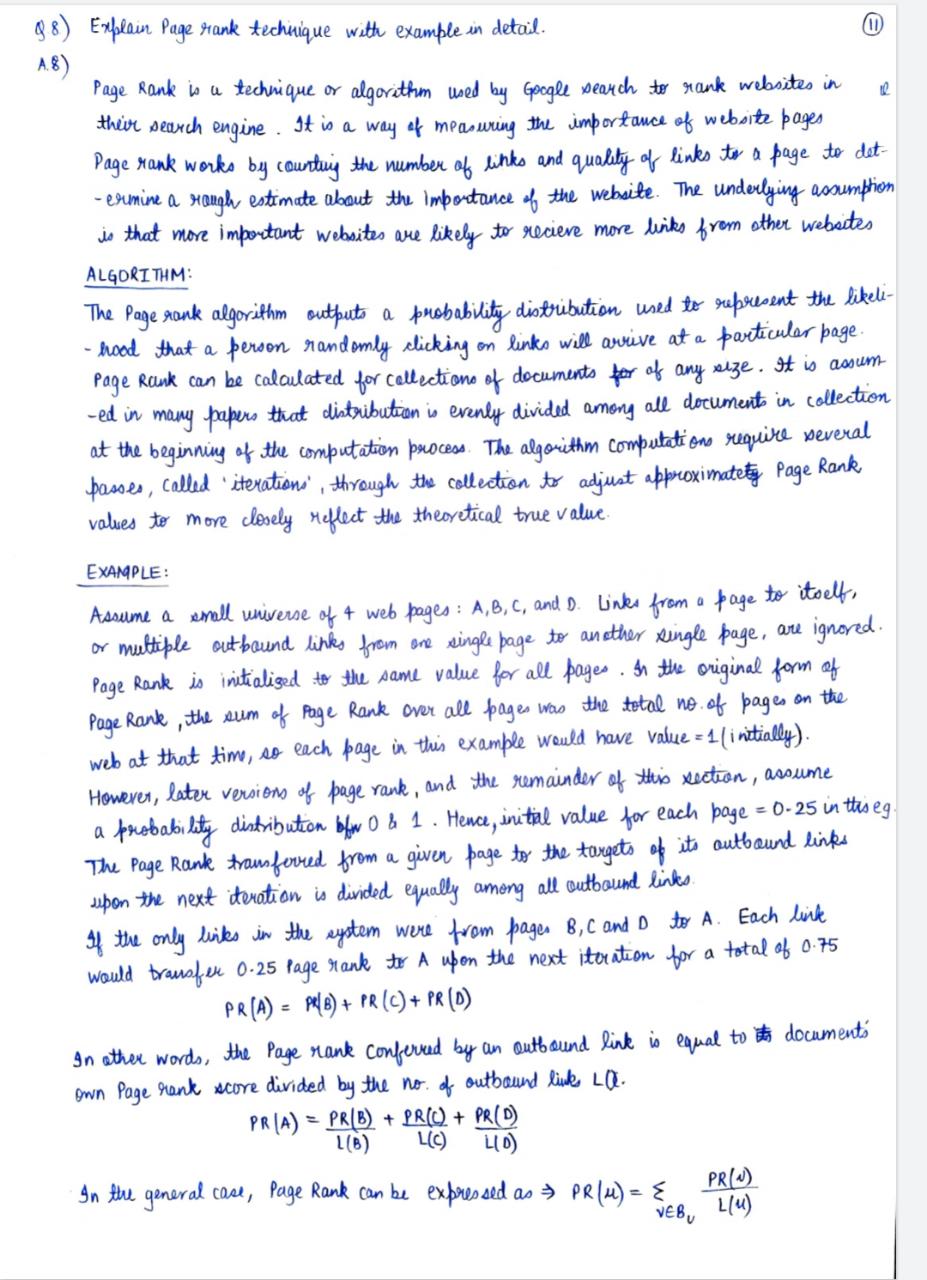 Q 8) Explain Page rank technique with example in detail. 11
A.8)
Page Rank is a technique or algorithm used by Google search to rank websites in
their search engine. It is a way of measuring the importance of website pages
Page rank works by counting the number of links and quality of links to a page to det-
-ermine a rough estimate about the importance of the website. The underlying assumption
is that more important websites are likely to recieve more links from other websites
ALGORITHM:
The Page rank algorithm outputs a probability distribution used to represent the likeli-
-hood that a person randomly clicking on links will arrive at a particular page.
Page Rank can be calculated for collections of documents for of any size. It is assum
-ed in many papers that distribution is evenly divided among all documents in collection
at the beginning of the computation process. The algorithm computations require several
passes, called 'iterations', through the collection to adjust approximately Page Rank
values to more closely reflect the theoretical true value.
EXAMPLE:
Assume a small universe of 4 web pages: A, B, C, and D. Links from a page to itself,
or multiple outbound links from one single page to another single page, are ignored.
Page Rank is initialized to the same value for all pages. In the original form of
Page Rank, the sum of Page Rank over all pages was the total no. of pages on the
web at that time, so each page in this example would have value = 1 (initially).
However, later versions of page rank, and the remainder of this section, assume
a probability distribution b/w 0 & 1. Hence, initial value for each page = 0.25 in this eg.
The Page Rank transferred from a given page to the targets of its outbound links
upon the next iteration is divided equally among all outbound links.
If the only links in the system were from pages B, C and D to A. Each link
would transfer 0.25 Page rank to A upon the next iteration for a total of 0.75
PR(A) = PR(B) + PR(C) + PR(D)
In other words, the Page rank conferred by an outbound link is equal to documents'
own Page rank score divided by the no. of outbound links L().
PR(A) = PR(B)/L(B) + PR(C)/L(C) + PR(D)/L(D)
In the general case, Page Rank can be expressed as ⇒ PR(u) = Σ v∈Bu PR(v)/L(u)